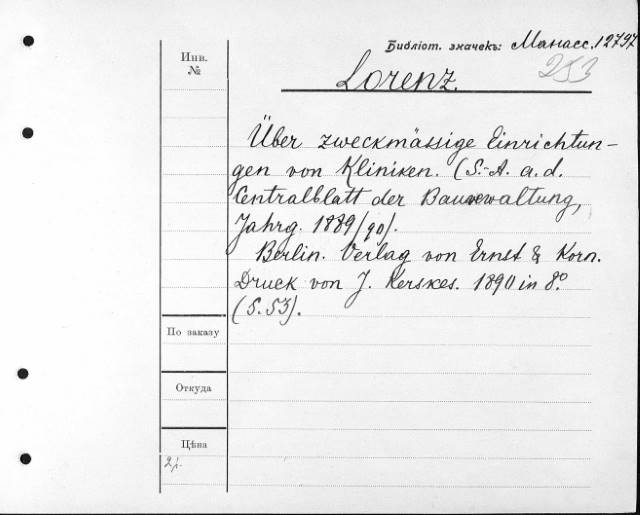 Библіот. значекъ: Манасс. 12797
253
Инв.
№
Lorenz.
Über zweckmässige Einrichtun-
gen von Kliniken. (S.-A. a. d.
Centralblatt der Bauverwaltung,
Jahrg. 1889/90).
Berlin. Verlag von Ernst & Korn.
Druck von J. Kerskes. 1890 in 8.º
(S. 53).
По заказу
Откуда
Цѣна
2 р.